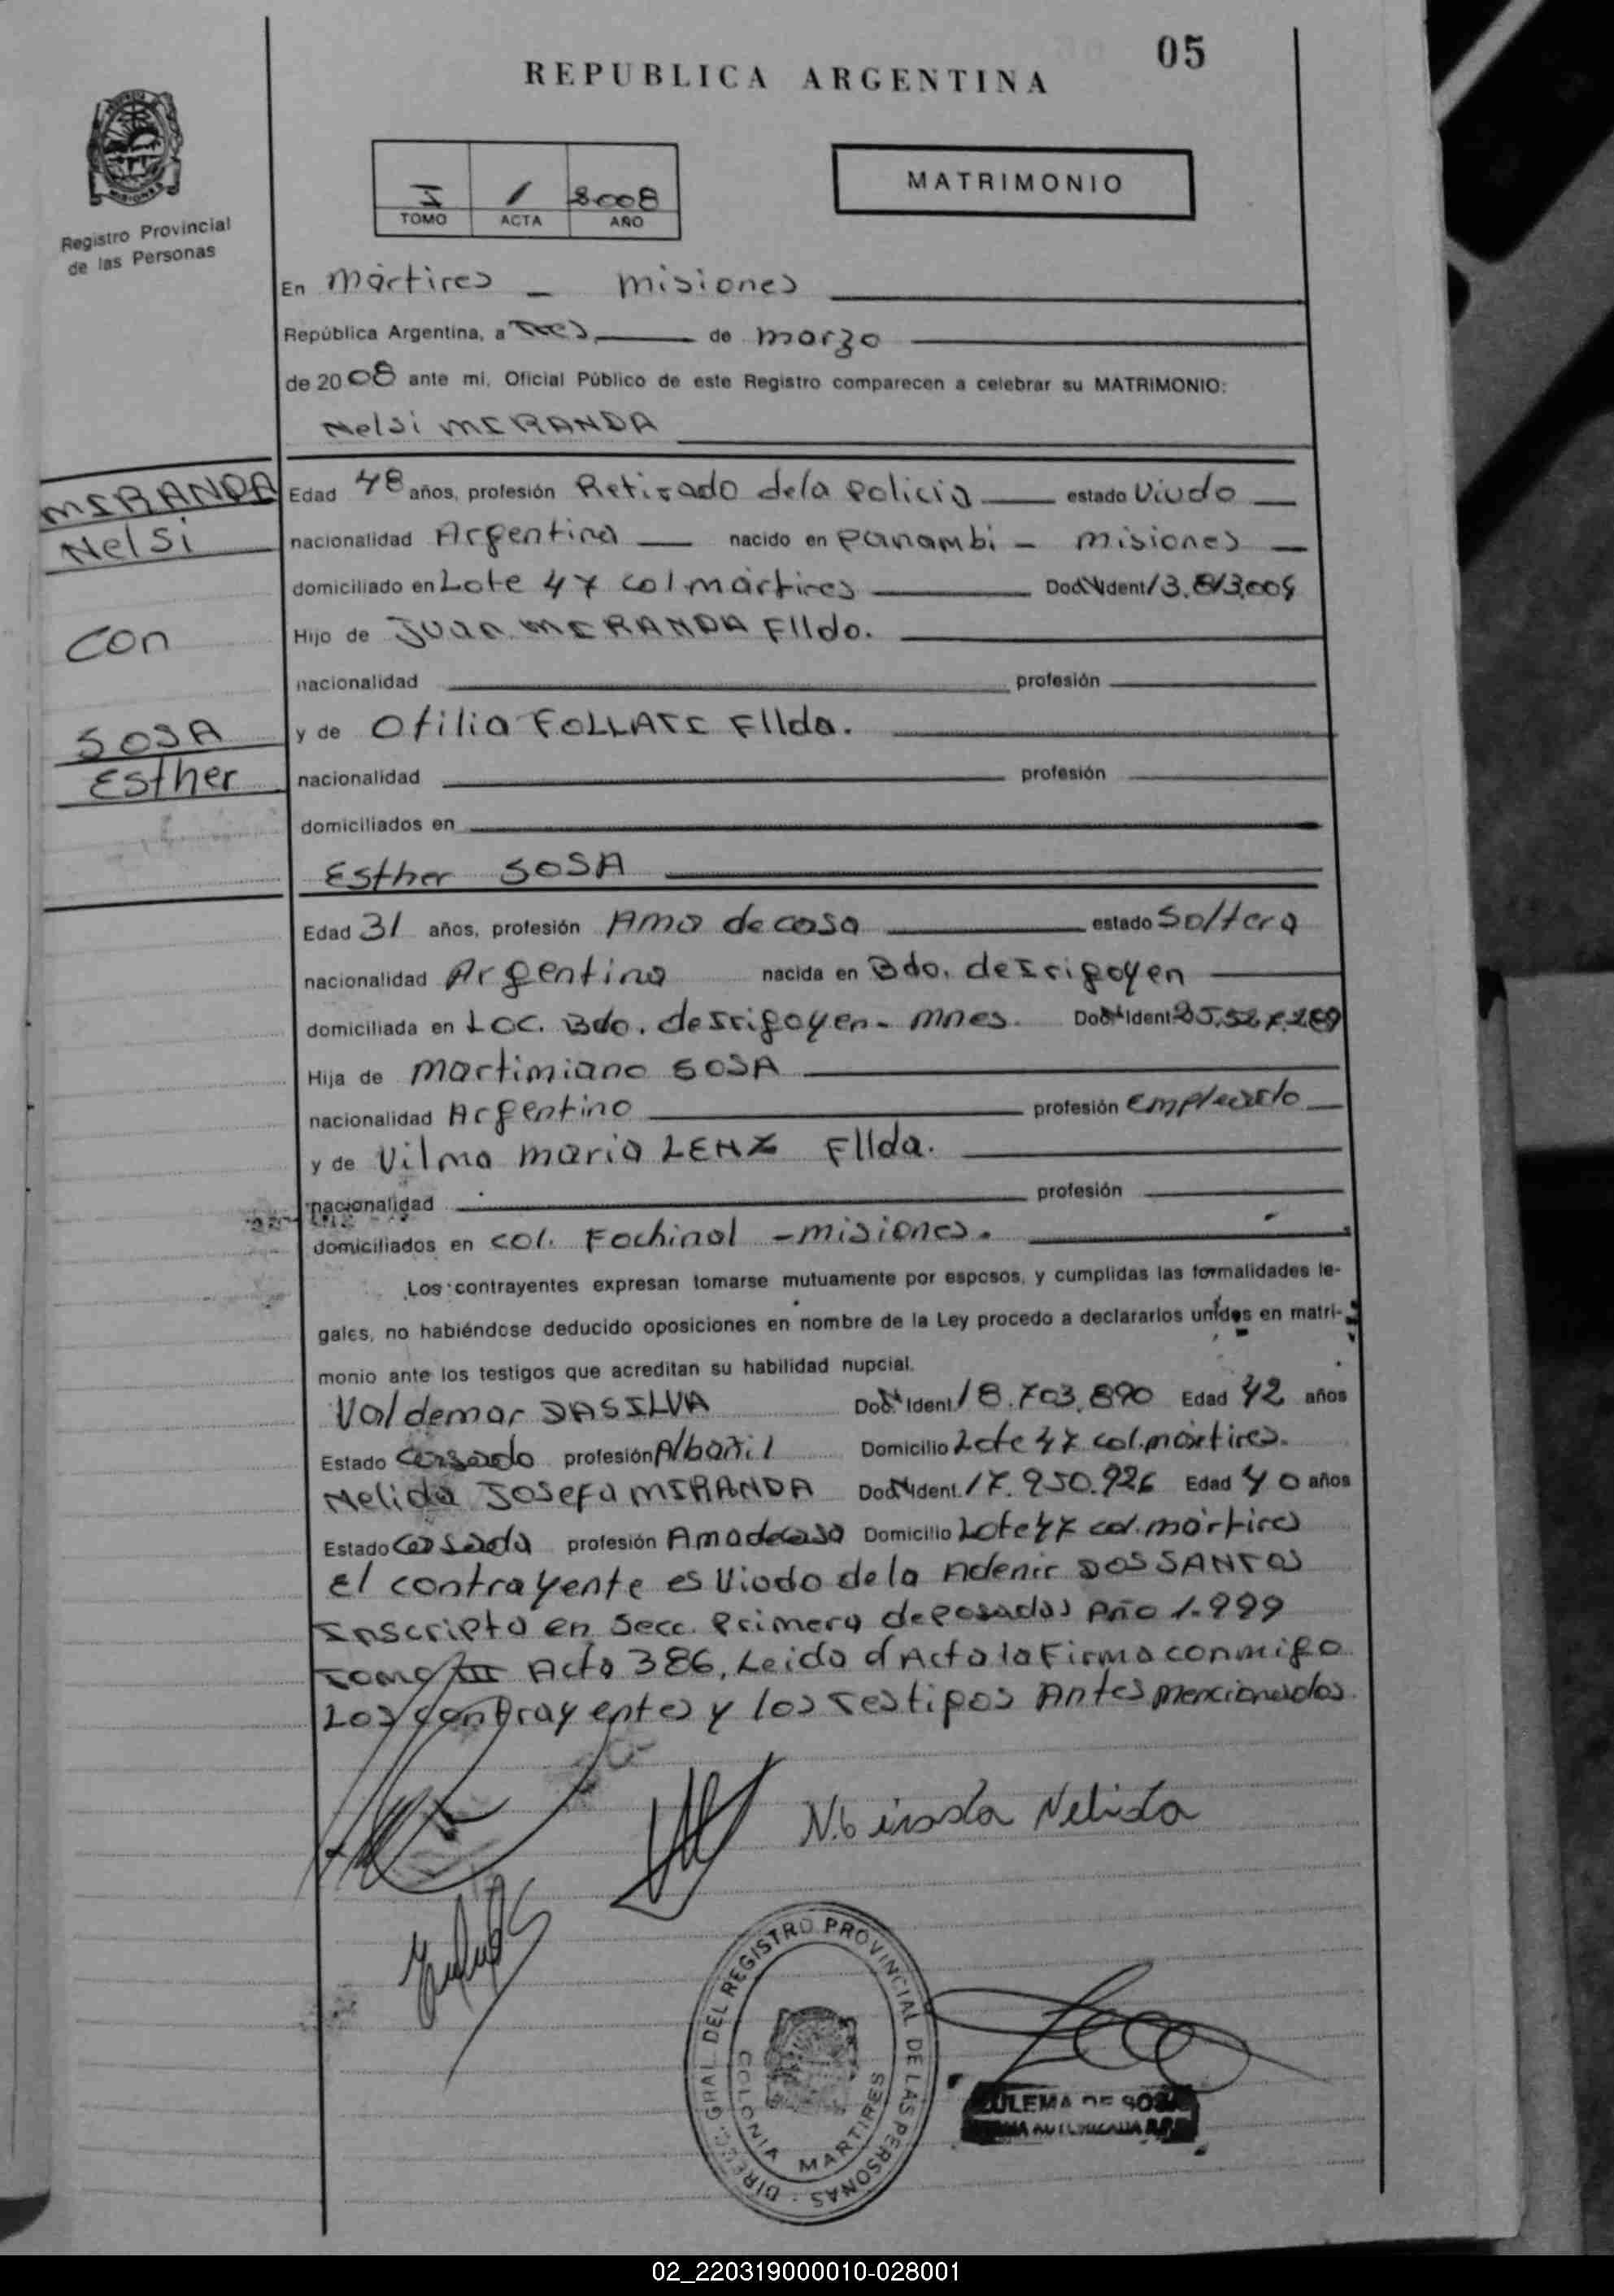 05
REPUBLICA ARGENTINA
I 1 2008
TOMO ACTA AÑO
MATRIMONIO
Registro Provincial
de las Personas
En Mártires - misiones
República Argentina, a Tres de marzo
de 2008 ante mi, Oficial Público de este Registro comparecen a celebrar su MATRIMONIO:
Nelsi MIRANDA
MIRANDA
Nelsi
con
SOSA
Esther
Edad 48 años, profesión Retirado dela policia estado Viudo
nacionalidad Argentina nacido en Panambi - misiones
domiciliado en Lote 47 col mártires Doc. N Ident
Hijo de Juan MIRANDA Flldo.
nacionalidad profesión
y de Otilia FOLLATI Fllda.
nacionalidad profesión
domiciliados en
Esther SOSA
Edad 31 años, profesión Ama de casa estado Soltera
nacionalidad Argentina nacida en Bdo. de Irigoyen
domiciliada en Loc. Bdo. de Irigoyen - mnes. Doc. N Ident
Hija de Martimiano SOSA
nacionalidad Argentino profesión empleado
y de Vilma maria LENZ Fllda.
nacionalidad profesión
domiciliados en col. Fachinal - misiones.
Los contrayentes expresan tomarse mutuamente por esposos, y cumplidas las formalidades le-
gales, no habiéndose deducido oposiciones en nombre de la Ley procedo a declararlos unidos en matri-
monio ante los testigos que acreditan su habilidad nupcial.
Valdemar DASILVA Doc. N Ident. 18.703.890 Edad 42 años
Estado Casado profesión Albañil Domicilio Lote 47 col. mártires.
Nelida Josefa MIRANDA Doc. N Ident. 17.950.926 Edad 40 años
Estado Casada profesión Ama de casa Domicilio Lote 47 col. mártires
El contrayente es Viudo de la Adenir DOS SANTOS
Inscripta en Secc. Primera de posadas Año 1.999
Tomo III Acta 386, Leida el Acta la Firma conmigo
Los contrayentes y los Testigos Antes mencionados.
Nelida
DIREC. GRAL. DEL REGISTRO PROVINCIAL DE LAS PERSONAS
COLONIA MARTIRES
ZULEMA DE SOSA
02_220319000010-028001